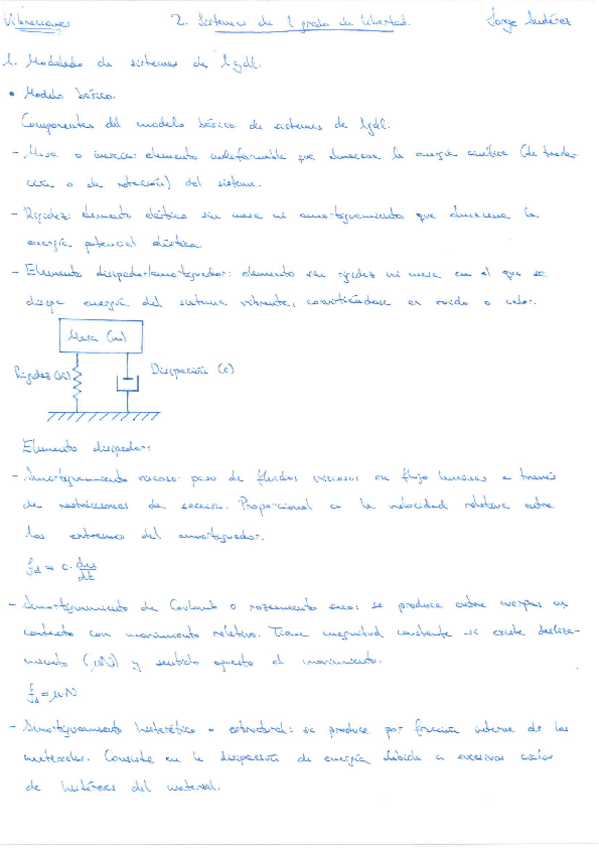 Vibraciones 2. Sistemas de 1 grado de libertad. Jorge
1. Modelado de sistemas de 1gdl.
• Modelo básico.
Componentes del modelo básico de sistemas de 1gdl:
- Masa o inercia: elemento indeformable que almacena la energía cinética (de trasla-
ción o de rotación) del sistema.
- Rigidez: elemento elástico sin masa ni amortiguamiento que almacena la
energía potencial elástica.
- Elemento disipador/amortiguador: elemento sin rigidez ni masa en el que se
disipa energía del sistema vibrante, convirtiéndose en ruido o calor.
Masa (m)
Rigidez (k) Disipación (c)
Elemento disipador:
- Amortiguamiento viscoso: paso de fluidos viscosos en flujo laminar a través
de restricciones de sección. Proporcional a la velocidad relativa entre
los extremos del amortiguador.
fd = c · du/dt
- Amortiguamiento de Coulomb o rozamiento seco: se produce entre cuerpos en
contacto con movimiento relativo. Tiene magnitud constante si existe desliza-
miento (μN) y sentido opuesto al movimiento.
fd = μN
- Amortiguamiento histerético o estructural: se produce por fricción interna de los
materiales. Consiste en la disipación de energía debida a sucesivos ciclos
de histéresis del material.